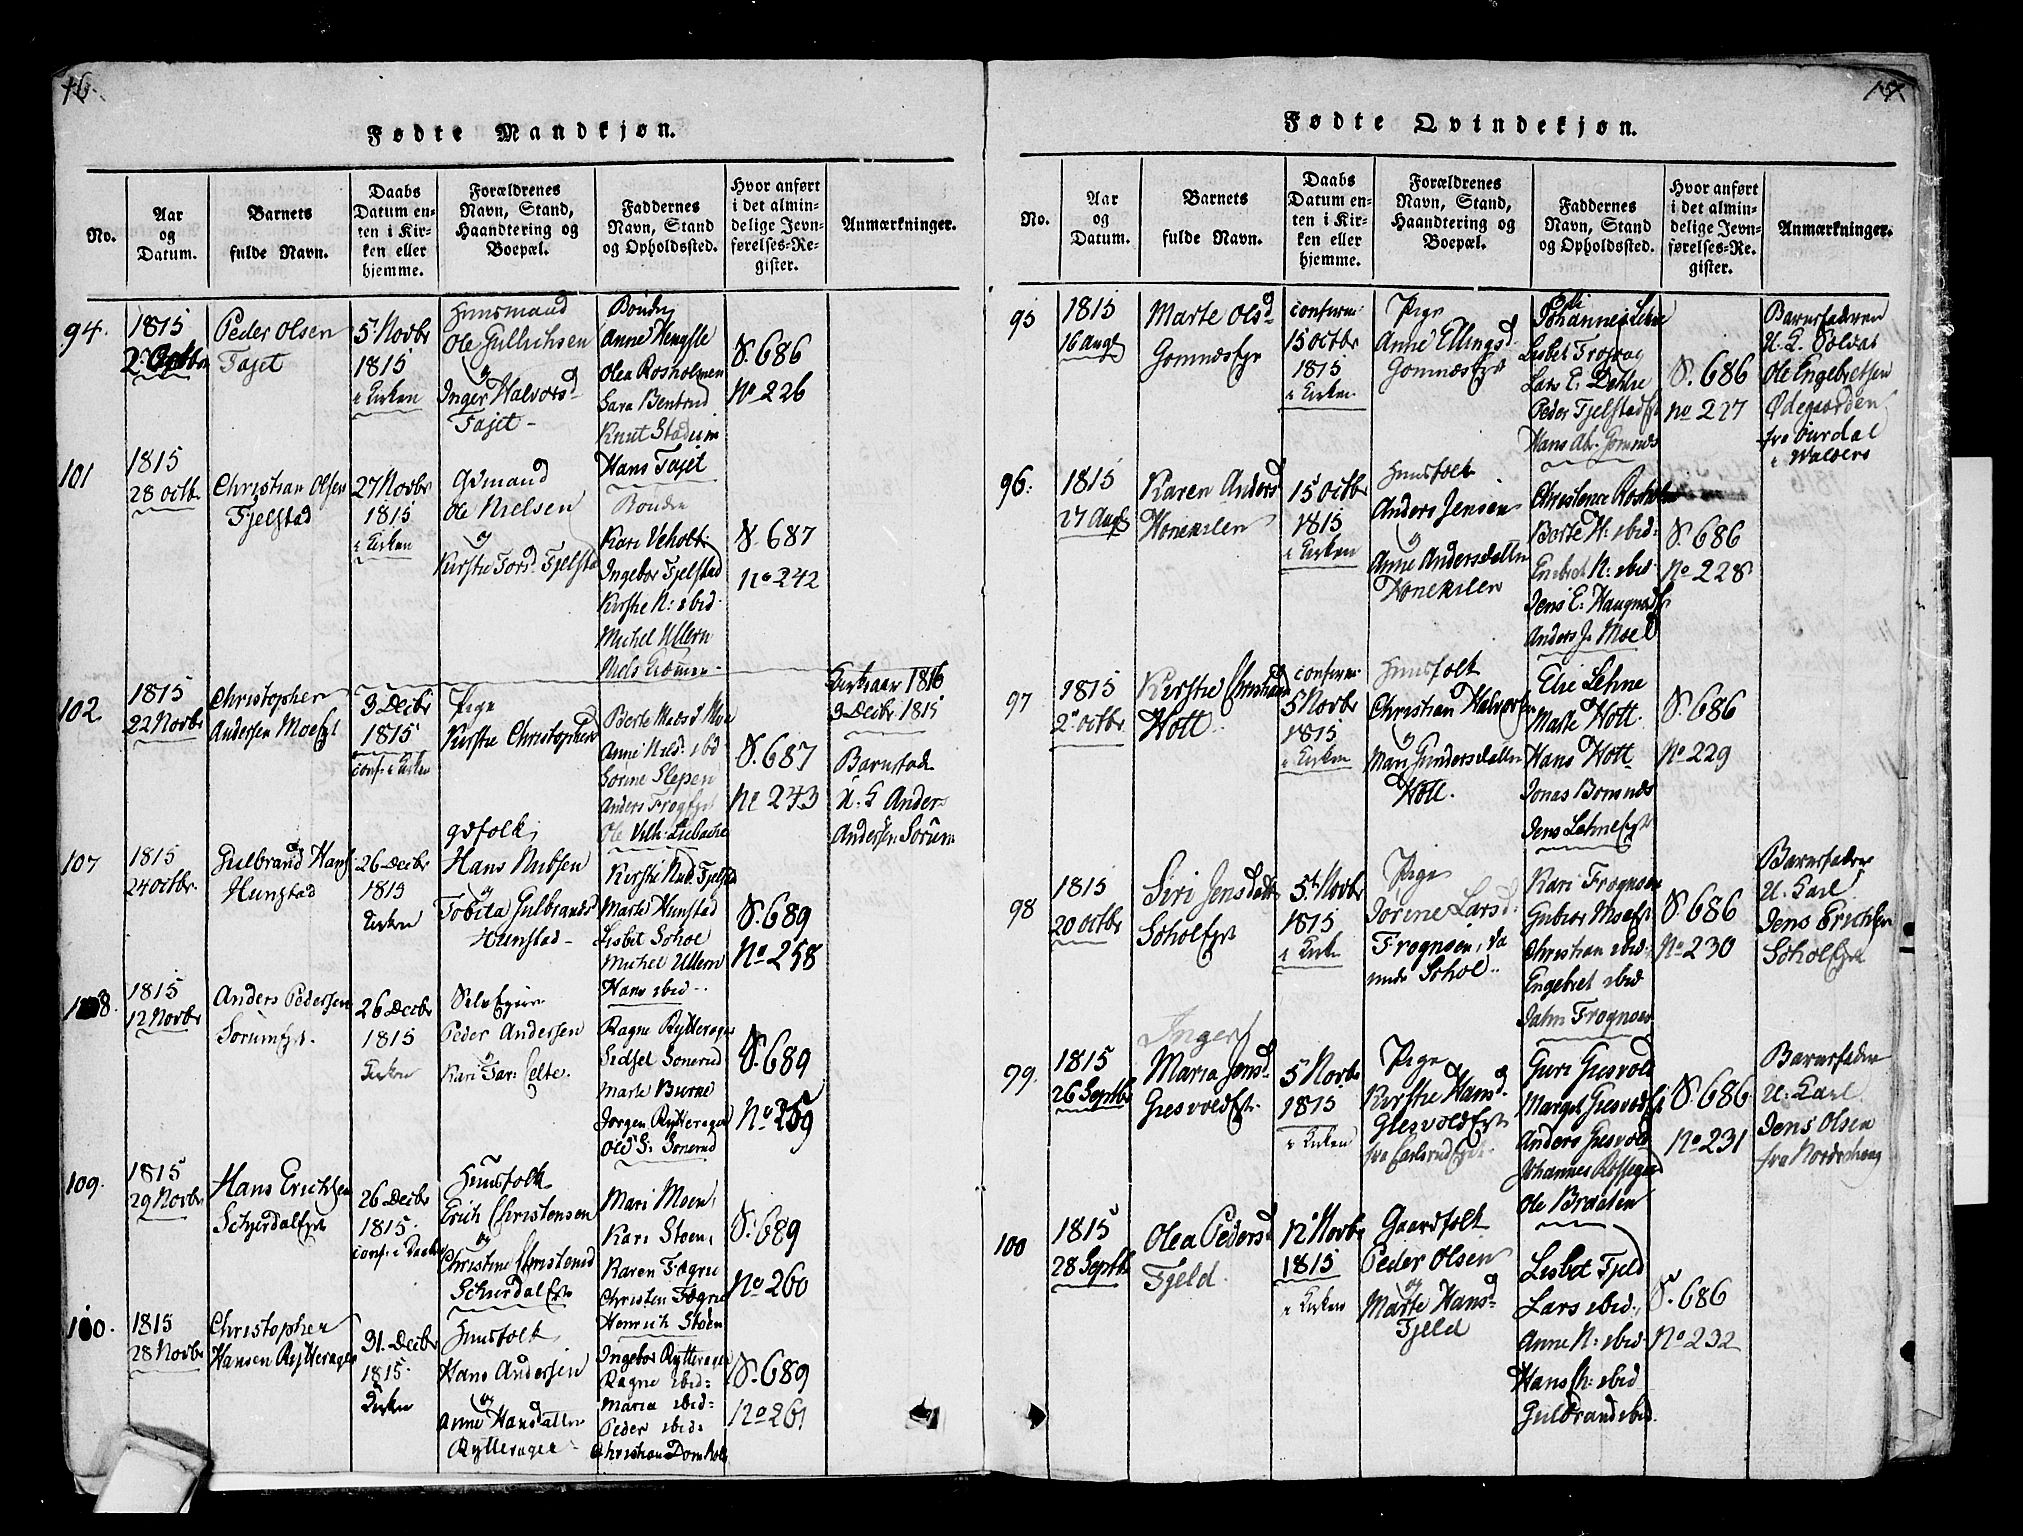 16.
Fødte Mandkjøn.
No.
Aar
og
Datum.
Barnets
fulde Navn.
Daabs
Datum en-
ten i Kir-
ken eller
hjemme.
Forældrenes
Navn, Stand,
Haandtering og
Boepæl.
Faddernes
Navn, Stand
og Opholdssted.
Hvor anført
i det almin-
delige Jevn-
førelses-Re-
gister.
Anmærkninger.
94.
1815
Peder Olsen
Fajet
5 Novbr
1815
i Kirken
Huusmand
Ole Gullichsen
og
Inger Halvorsd
Fajet
Bønder
Anne Hengsle
Olea Rosholmen
Sara Bentrud
Knut Stadum
Hans Fajet
S. 686
No 226
101
1815
28 Octb.
Christian Olsen
Fjelstad
27 Novbr
1815
i Kirken
Gdmand
Ole Nielsen
og
Kirstie Tors. Fjelstad
Bønder
Kari Veholt
Ingebor Fjelstad
Kirstie N: ibid
Michel Ullern
S. 687
No 242
102
1815
22 Novbr
Christopher
Andersen Moe
3 Decbr
1815
conf. i Kirken
Pige
Kirstie Christophersd
Anders Frog
S. 687
No 243
Kirkaar 1816
3 Decbr 1815
Barnefad
U. G Anders
Andersen Sørum
107
1815
24 Octbr.
Gulbrand Hans
Hunstad
26 Decbr
1815
Kirken
Gdfolk
Hans Nubsen
og
Tobita Gulbrands
Hunstad
Kirstie Nud Fjelstad
Marte Hunstad
Lisbet Sohol
Michel Ullern
Hans ibid
S. 689
No 258
108.
1815
12 Novbr
Anders Pedersen
Sørum
26 Decbr
1815
Kirken
Selveyer
Peder Andersen
og
Kari
Ragne Rytterager
Sidsel Sonerud
Marte Burne
Jørgen Rytterager
Ole S: Sonerud
S. 689
No 259
109.
1815
29 Novbr
Hans Erichsen
Schjerdal
26 Decbr
1815
conf. i Kirken
Huusfolk
Erich Christensen
og
Christine Christensd
Schjerdal
Mari Moen
Kari Støen
Karen Fægrie
Christen Fægrie
Henrich Støen
S. 689
No 260
110.
1815
28 Novbr
Christopher
Hansen Rytterager
31. Decbr
1815
Kirken
Huusfolk
Hans Andersen
og
Anne Hansdatter
Rytterager
Ingebor Rytterager
Ragne ibid
Maria ibid
Peder ibid
Christian Domholt
S. 689
No 261
17.
Fødte Qvindekjøn.
No.
Aar
og
Datum.
Barnets
fulde Navn.
Daabs
Datum en-
ten i Kir-
ken eller
hjemme.
Forældrenes
Navn, Stand,
Haandtering og
Boepæl.
Faddernes
Navn, Stand
og Opholdssted.
Hvor anført
i det almin-
delige Jevn-
førelses-Re-
gister.
Anmærkninger.
95
1815
16 Augt
Marte Olsd
Gomnæs
confirm
15 Octbr
1815
i Kirken
Pige
Anne Ellingsd
Gomnæs
Johannes Lehne
Lars E. Dehle
Peder Fjelstad
Hans Ab. Gomnæs
S. 686
No 227
Barnefaderen
U. G. Soldat
Ole Engebretsen
Ødegaarden
fra Ourdal
i Walders
96.
1815
27 Augt
Karen Anders
Honekilen
15 Octbr
1815
i Kirken
Huusfolk
Anders Jensen
og
Anne Andersdatter
Honekilen
Christence Rosholm
Borte H: ibid
Engebret N: ibid
Jens E: Haugnæs
Anders J. Moe
S. 686
No 228
97
1815
2 Octbr
Kirstie Christiansd
Hott
confirm
5 Novbr
1815
i Kirken
Huusfolk
Christian Halvorsen
og
Mari Gundersdatter
Hott.
Elie Lehne
Marte Hott
Hans Hott
Jonas Bomnæs
Jens Lehne
S. 686
No 229
98
1815
20 Octbr
Siri Jensdatter
Sohol
5 Novbr
1815
i Kirken
Pige
Jorine Larsd.
Frognsøn
Kari Frognsøn
Christian ibid
Engebret ibid
Jahn Frognsøn
S. 686
No 230
Barnefader
U. Karl
Jens Erichsen
Sohol
99.
1815
26 Septbr
Inger
Maria Jensd
Gresvold
5 Novbr
1815
i Kirken
Pige
Kirstie Hansd
Glesvold
Guri Gresvold
Margit Gresvold
Anders Gresvold
Ole Braaten
S. 686
No 231
Barnefader
U. Karl
Jens Olsen
100
1815
28 Septbr
Olea Pedersd
Fjeld.
12 Novbr
1815
i Kirken
Gaardfolk
Peder Olsen
og
Marte Hansd
Fjeld
Lisbet Fjeld
Lars ibid
Anne N: ibid
Hans Ch: ibid
Guldbrand ibid
S. 686
No 232